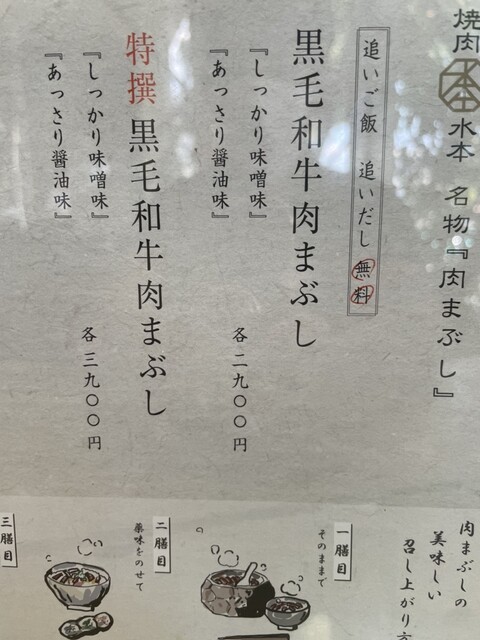 焼肉 水本 名物『肉まぶし』
追いご飯 追いだし 無料
黒毛和牛肉まぶし
『しっかり味噌味』
『あっさり醤油味』
各二九〇〇円
特撰 黒毛和牛肉まぶし
『しっかり味噌味』
『あっさり醤油味』
各三九〇〇円
肉まぶしの
美味しい
召し上がり方
一膳目
そのままで
二膳目
薬味をのせて
三膳目